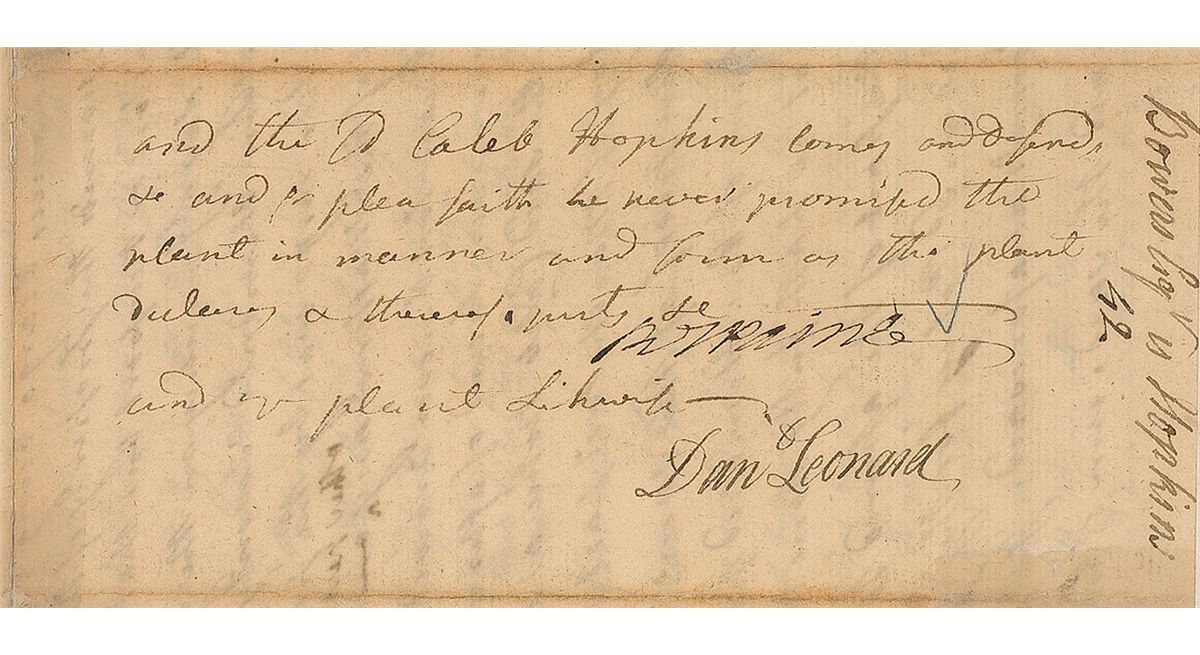 and the sd Caleb Hopkins comes and defends
&c and for plea saith he never promised the
plant in manner and form as the plant
Declares & thereof puts &c
RTPaine
and ye plant Likewise
Danl Leonard
Bowerby Vs Hopkins
42